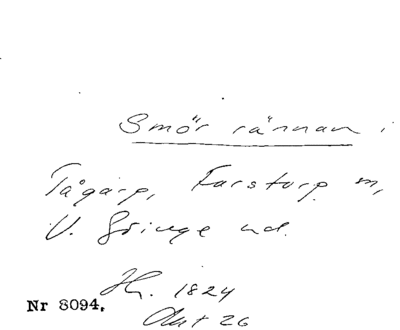 Smör rännan i
Tågarp, Farstorp m,
V. Göinge hd.
Hz. 1824
Akt 26
Nr 8094.